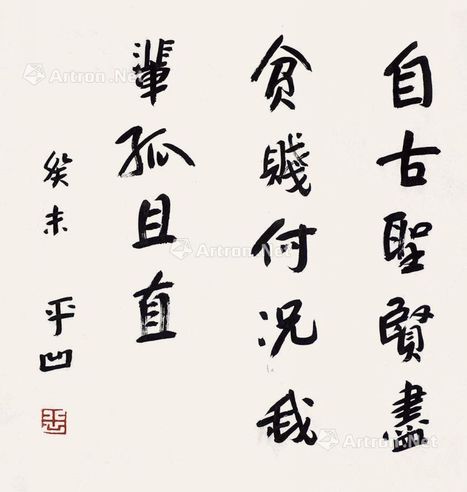 自古聖賢盡
貧賤何況我
輩孤且直
癸未 平凹
Artron.Net
Artron.Net
Artron.Net
Artron.Net